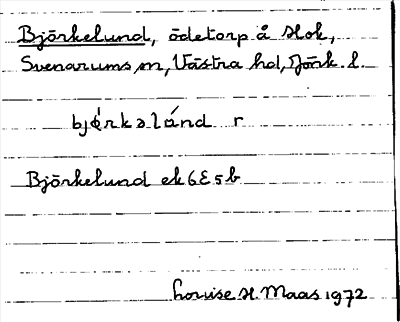 Björkelund, ödetorp å Hok,
Svenarums sn, Västra hd, Jönk. l.
bjørkəlánd r
Björkelund ek 6E5b
Louise H. Maas 1972